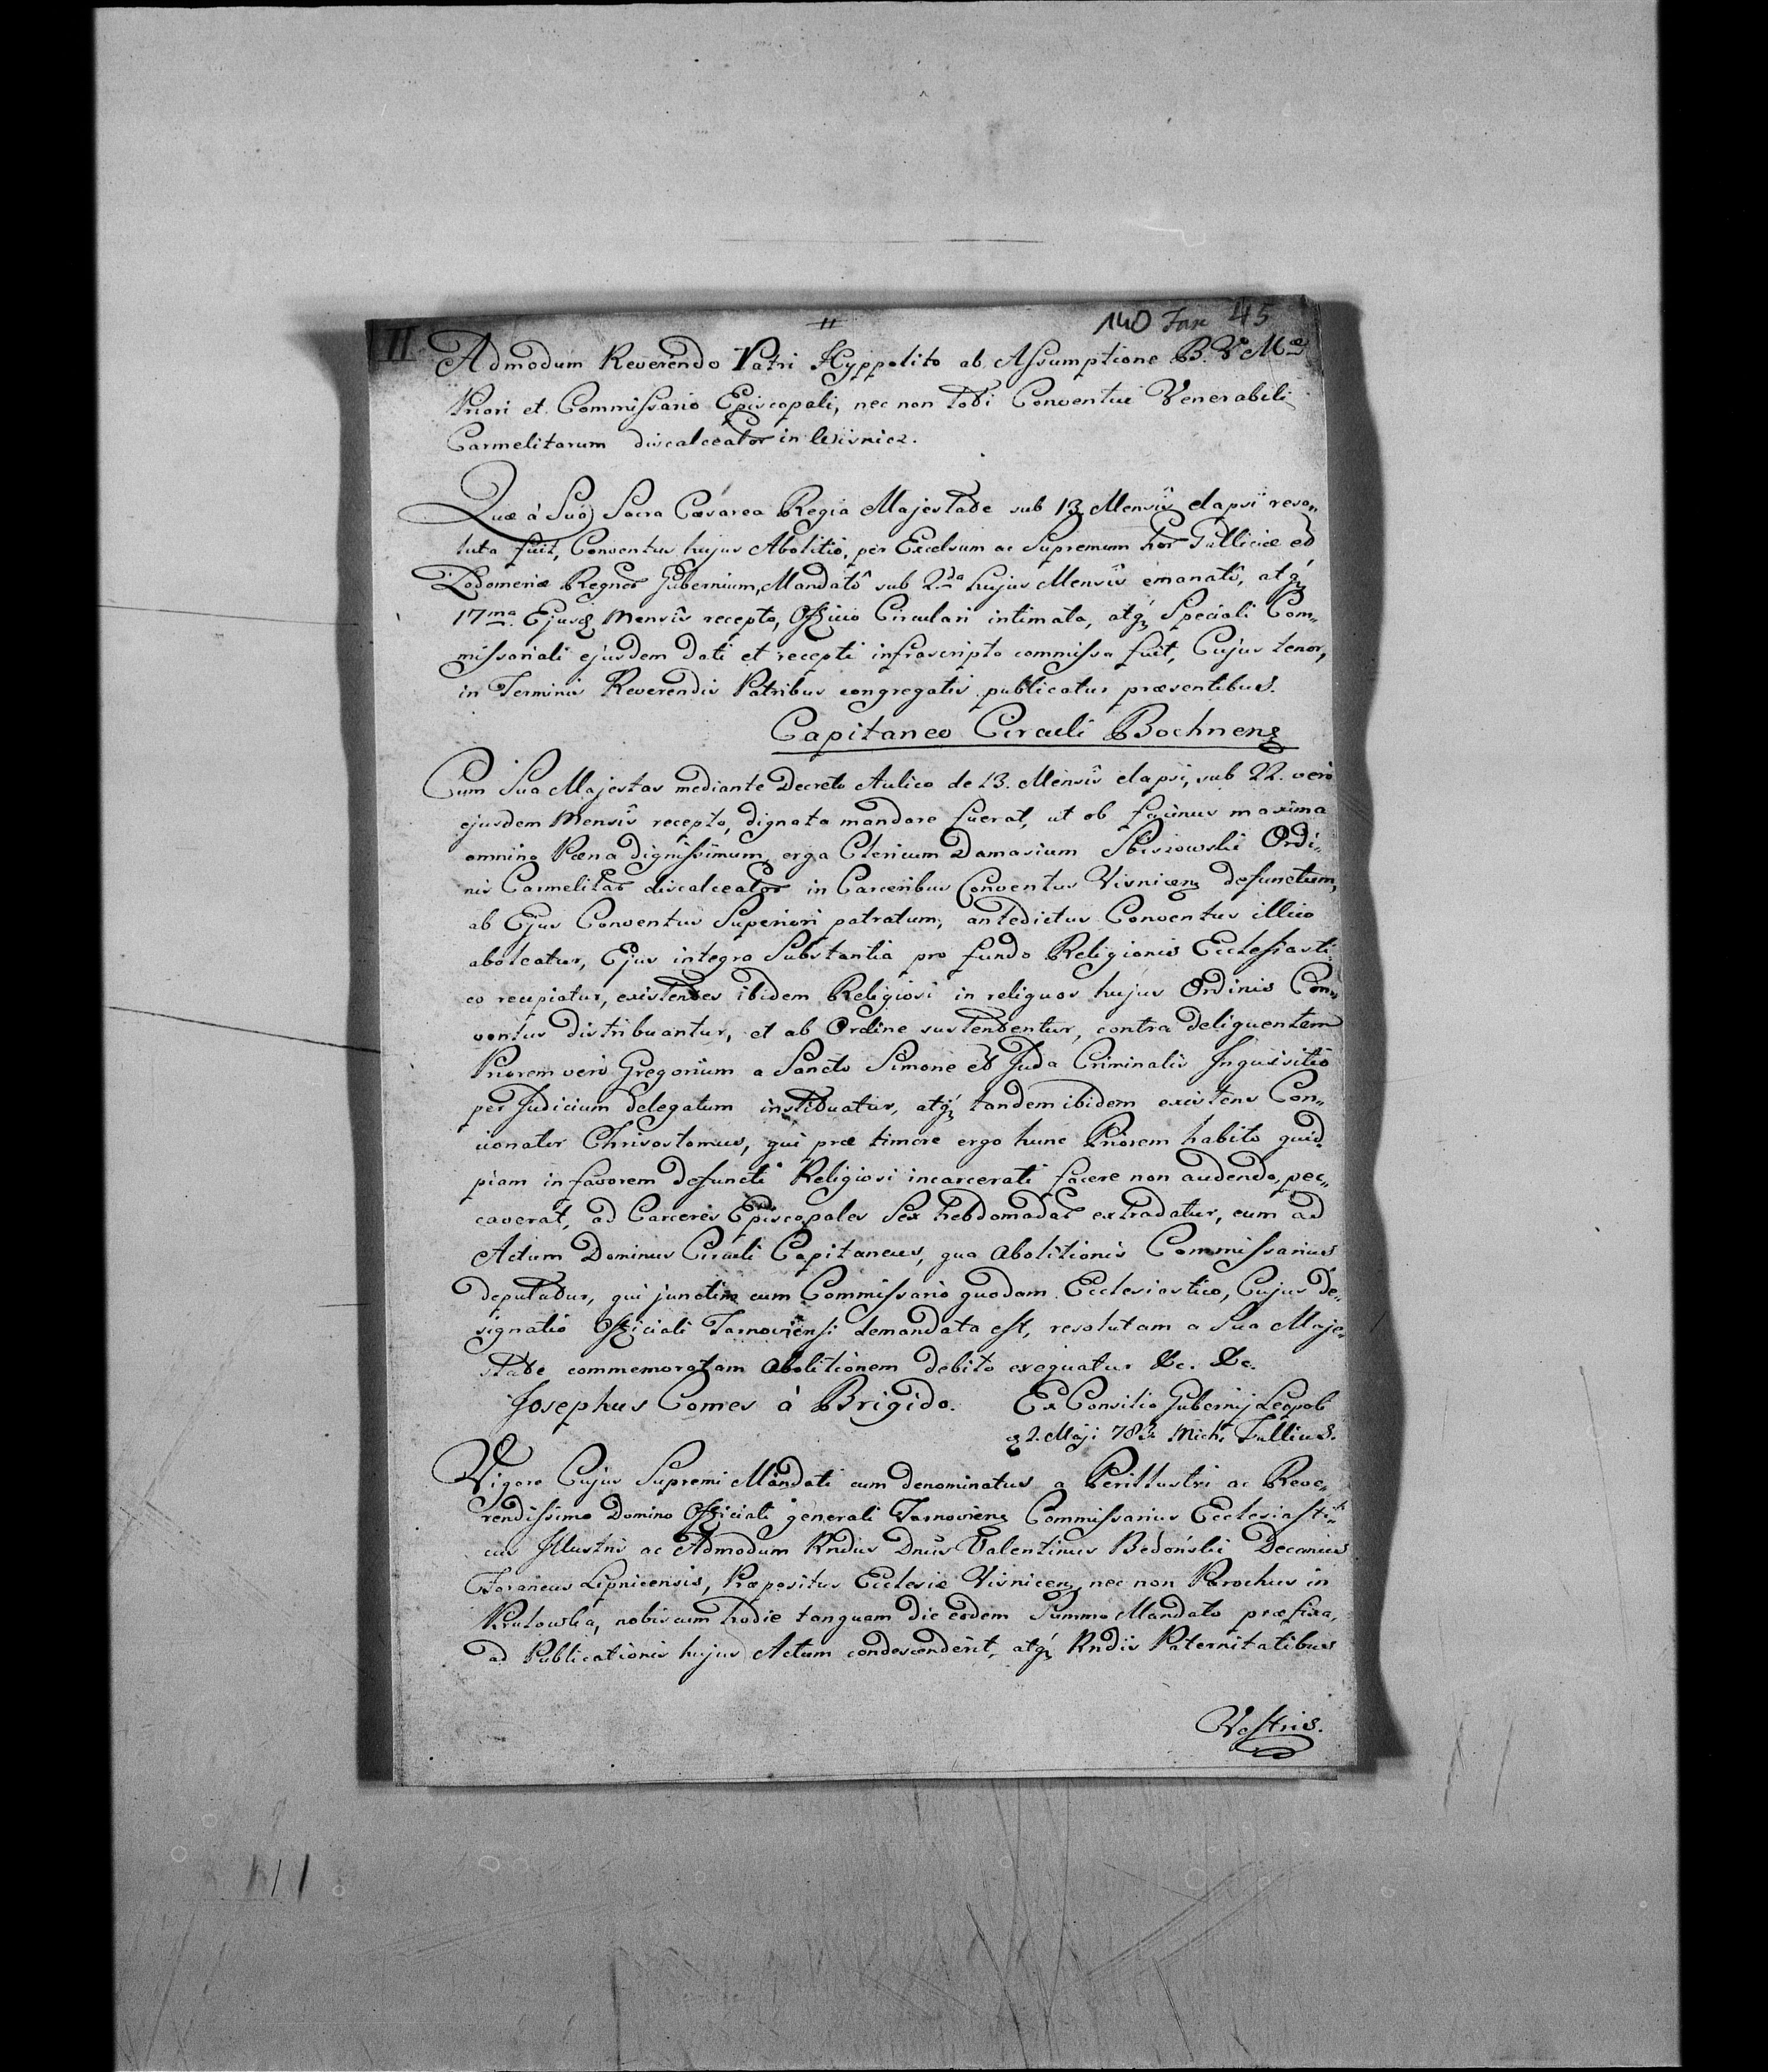 II
"
140 Fasc 45
Admodum Reverendo Patri Hyppolito ab Assumptione B. V. Mæ
Priori et Commissario Episcopali, nec non toti Conventui Venerabili
Carmelitarum discalceator in Wisnicz.
Quæ à Suâ Sacra Cæsarea Regia Majestate sub 13. Mensis elapsi reso„
luta fuit, Conventus hujus Abolitio, per Excelsum ac Supremum hor Galliciæ et
Lodomeriæ Regnor Gubernium, Mandatô sub 2da hujus Mensis emanatô, atq3
17ma Ejusd Mensis recepto, Officio Circulari intimata, atq3 Speciali Com„
missariali ejusdem dati et recepti infrascripto commissa fuit, Cujus tenor,
in Terminis Reverendis Patribus congregatis publicatur præsentibus.
Capitaneo Circuli Bochnens
Cum Sua Majestas mediante Decreto Aulico de 13. Mensis elapsi, sub 22. vero
ejusdem Mensis recepto, dignata mandare fuerat, ut ob facinus maxima
omnino Pæna dignissimum, erga Clericum Damasium Ordi„
nis Carmelitar discalceator in Carceribus Conventus Visnicens defunctum,
ab Ejus Conventus Superiori patratum, antedictus Conventus illico
aboleatur, Ejus integra Substantia pro fundo Religionis Ecclesiasti„
co recipiatur, existentes ibidem Religiosi in reliquos hujus Ordinis Con„
ventus distribuantur, et ab Ordine sustententur, contra deliquentem
Priorem vero Gregorium a Sancto Simone et Juda Criminalis Inquisitio
per Judicium delegatum instituatur, atq3 tandem ibidem existens Con„
cionator Chrisostomus, qui præ timore ergo hunc Priorem habito quid„
piam in favorem defuncti Religiosi incarcerati facere non audendo, pec„
caverat, ad Carceres Episcopales Sex hebdomadar extradatur, cum ad
Actum Dominus Circuli Capitaneus, qua Abolitionis Commissarius
deputatur, qui junctim cum Commissario quodam Ecclesiastico, Cujus de„
signatio Officiali Tarnoviensi demandata est, resolutam a Sua Maje„
state commemoratam Abolitionem debito exequatur &c. &c.
Josephus Comes à Brigido. Ex Consilio Gubernij Leopol
2. Maji 783. Mich. Tullius.
Vigore Cujus Supremi Mandati cum denominatus a Perillustri ac Reve„
rendissimo Domino Officiali generali Tarnoviens Commissarius Ecclesiasti„
cus Illustris ac Admodum Rndus Dnus Valentinus Bedoński Decanus
Foraneus Lipnicensis, Præpositus Ecclesiæ Visnicens, nec non Parochus in
nobiscum hodie tanquam die eodem Summo Mandato præfixa,
ad Publicationis hujus Actum condescenderit, atq3 Rndis Paternitatibus
Vestris.